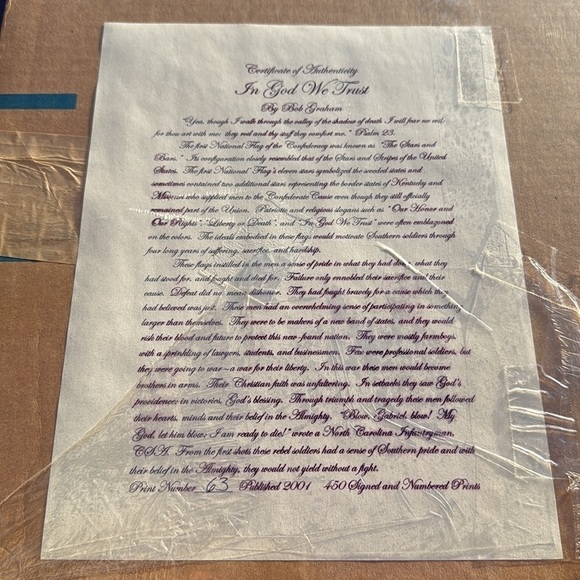 Certificate of Authenticity
In God We Trust
By Bob Graham
"Yea, though I walk through the valley of the shadow of death I will fear no evil:
for thou art with me: they rod and thy staff they comfort me." Psalm 23.
The first National Flag of the Confederacy was known as "The Stars and
Bars." Its configuration closely resembled that of the Stars and Stripes of the United
States. The first National Flag's eleven stars symbolized the seceded states and
sometimes contained two additional stars representing the border states of Kentucky and
Missouri who supplied men to the Confederate Cause even though they still officially
remained part of the Union. Patriotic and religious slogans such as "Our Honor and
Our Rights", "Liberty or Death", and "In God We Trust" were often emblazoned
on the colors. The ideals embodied in these flags would motivate Southern soldiers through
four long years of suffering, sacrifice, and hardship.
These flags instilled in the men a sense of pride in what they had done, what they
had stood for, and fought and died for. Failure only ennobled their sacrifice and their
cause. Defeat did not mean dishonor. They had fought bravely for a cause which they
had believed was just. These men had an overwhelming sense of participating in something
larger than themselves. They were to be makers of a new band of states, and they would
risk their blood and future to protect this new-found nation. They were mostly farmboys,
with a sprinkling of lawyers, students, and businessmen. Few were professional soldiers, but
they were going to war – a war for their liberty. In this war these men would become
brothers in arms. Their Christian faith was unfaltering. In setbacks they saw God's
providence; in victories, God's blessing. Through triumph and tragedy these men followed
their hearts, minds and their belief in the Almighty. "Blow, Gabriel, blow! My
God, let him blow; I am ready to die!" wrote a North Carolina Infantryman,
C.S.A. From the first shots these rebel soldiers had a sense of Southern pride and with
their belief in the Almighty, they would not yield without a fight.
Print Number 63 Published 2001 450 Signed and Numbered Prints